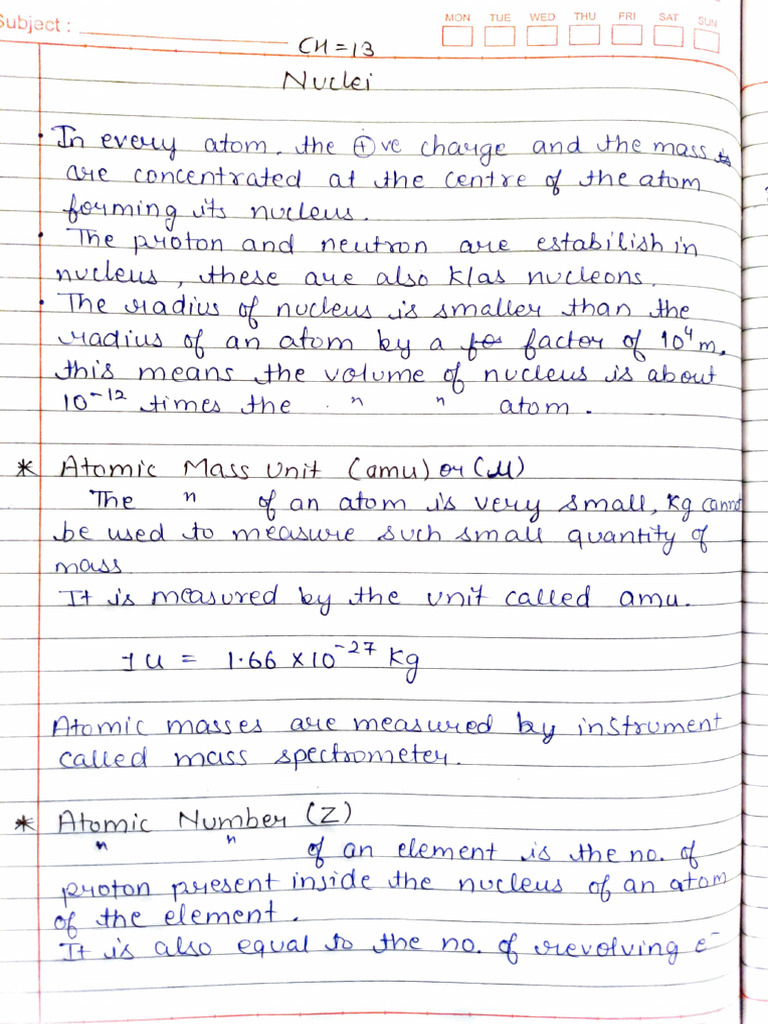 Subject :
MON TUE WED THU FRI SAT SUN
CH = 13
Nuclei
• In every atom, the ⊕ve charge and the mass
are concentrated at the centre of the atom
forming its nucleus.
• The proton and neutron are estabilish in
nucleus, these are also k/as nucleons.
• The radius of nucleus is smaller than the
radius of an atom by a factor of 10⁴ m,
this means the volume of nucleus is about
10⁻¹² times the " " atom.
* Atomic Mass Unit (amu) or (u)
The " of an atom is very small, kg cannot
be used to measure such small quantity of
mass
It is measured by the unit called amu.
1 u = 1.66 × 10⁻²⁷ kg
Atomic masses are measured by instrument
called mass spectrometer.
* Atomic Number (Z)
" " of an element is the no. of
proton present inside the nucleus of an atom
of the element.
It is also equal to the no. of revolving e⁻